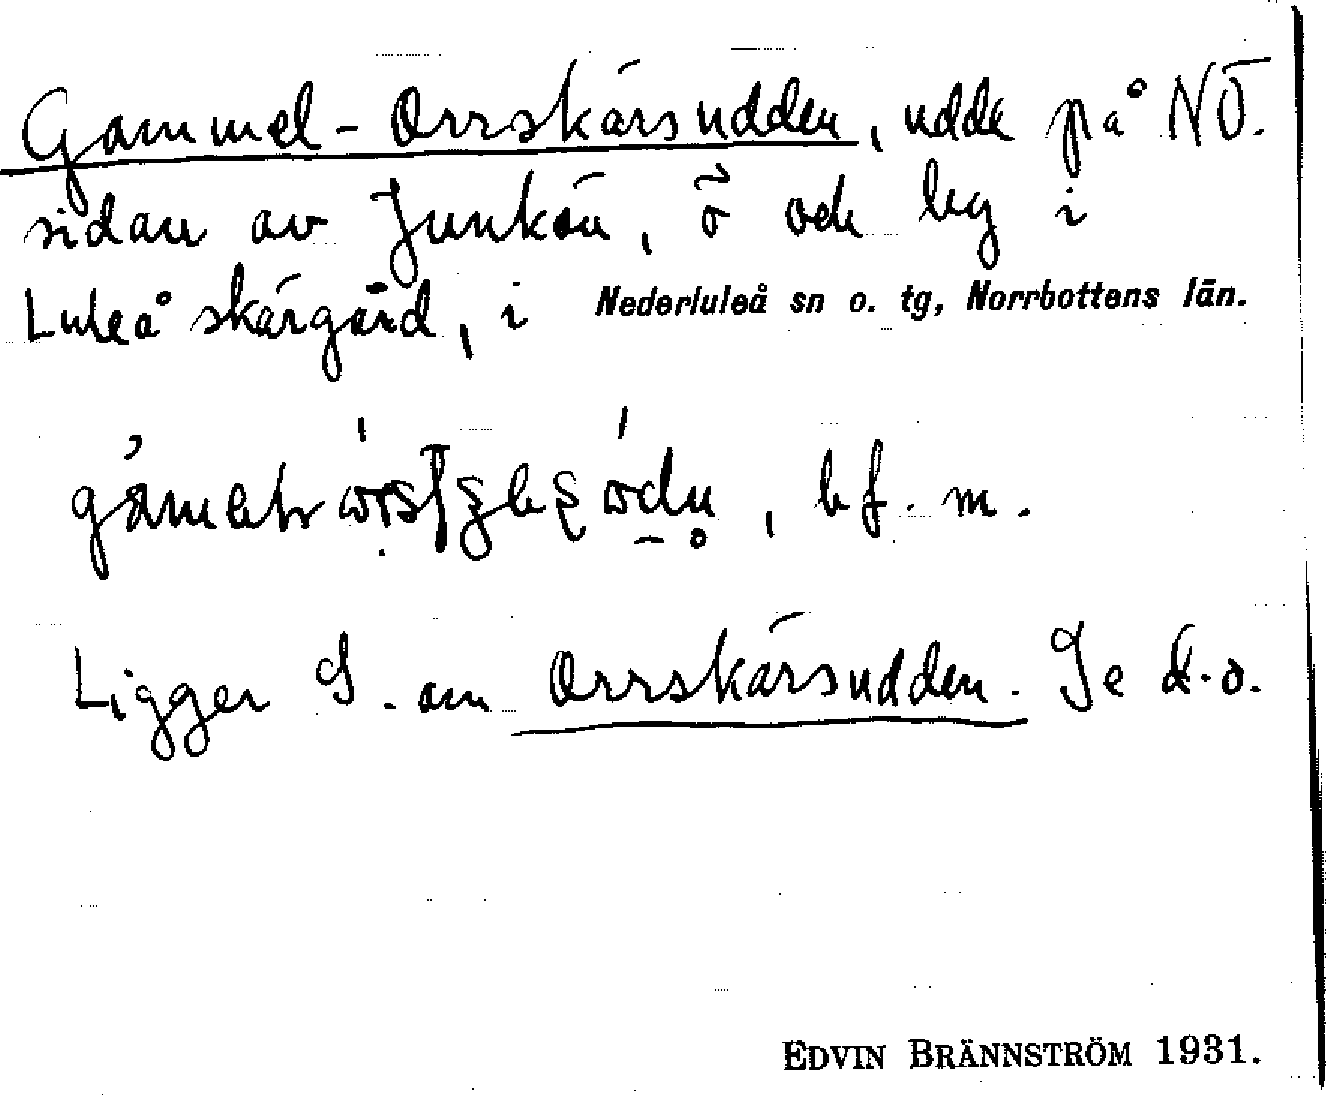 Gammel-Orrskärsudden, udde på NÖ.
sidan av Junkön, ö och by i
Luleå skärgård, i Nederluleå sn o. tg, Norrbottens län.
bf. m.
Ligger S. om Orrskärsudden. Se d.o.
EDVIN BRÄNNSTRÖM 1931.